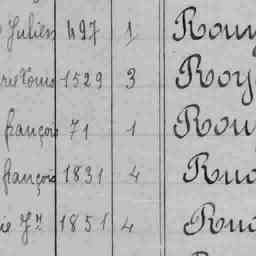 Julien 497 1 Rouy
Louis 1529 3 Roy
françois 71 1 Rouy
françois 1831 4 Rud
ie Jⁿ 1851 4 Rud